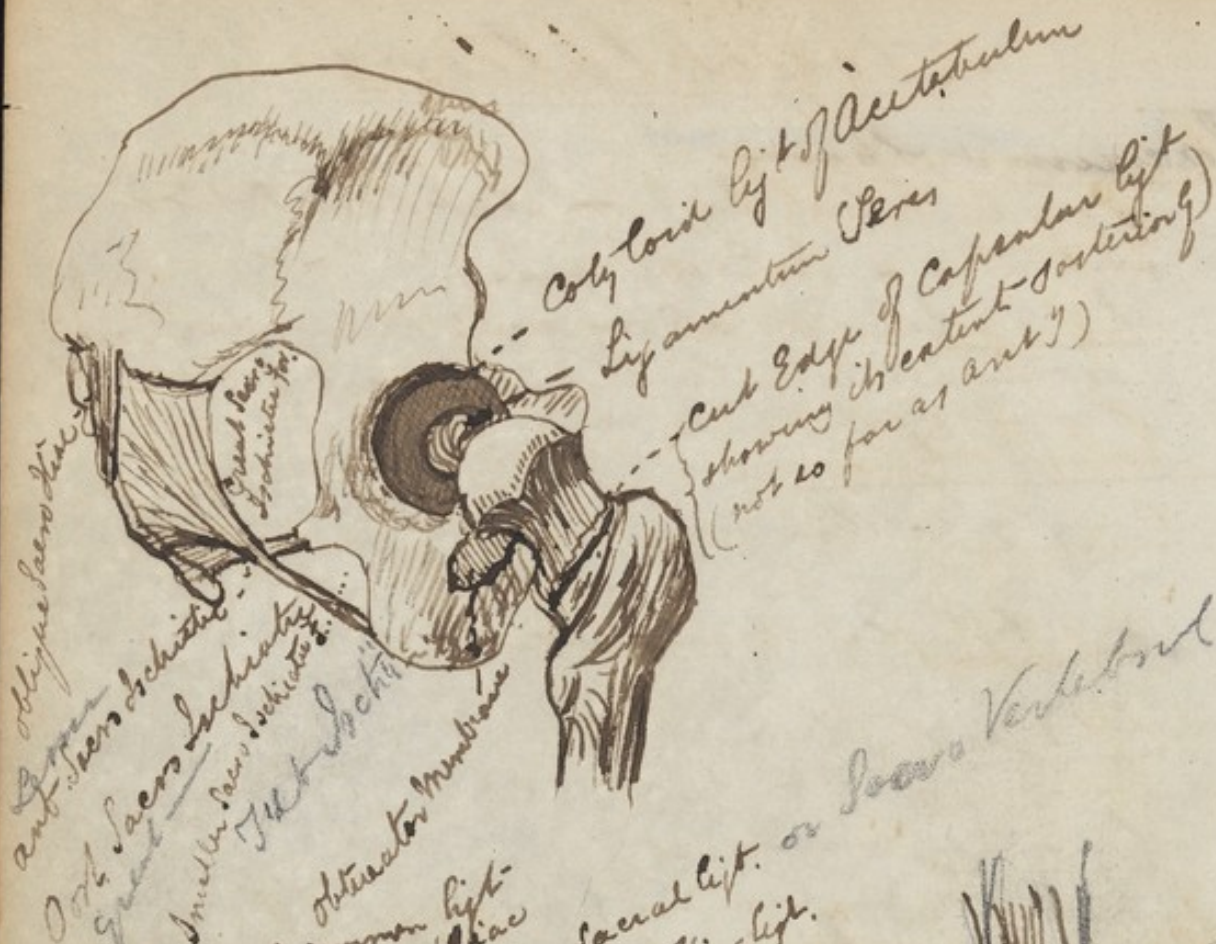 Cotyloid ligt of Acetabulum
Ligamentum Teres
Cut Edge of Capsular ligt
showing its extent posteriorly)
(not so far as antly)
Great Sacro
Ischiatic for.
oblique Sacro Iliac
Lesser
ant. Sacro Ischiatic
Post. Sacro Ischiatic
Great
Smaller Sacro Ischiatic f.
Tub Ischii
obturator Membrane
or Sacro Vertebral
Sacral ligt.
ligt
ligt.